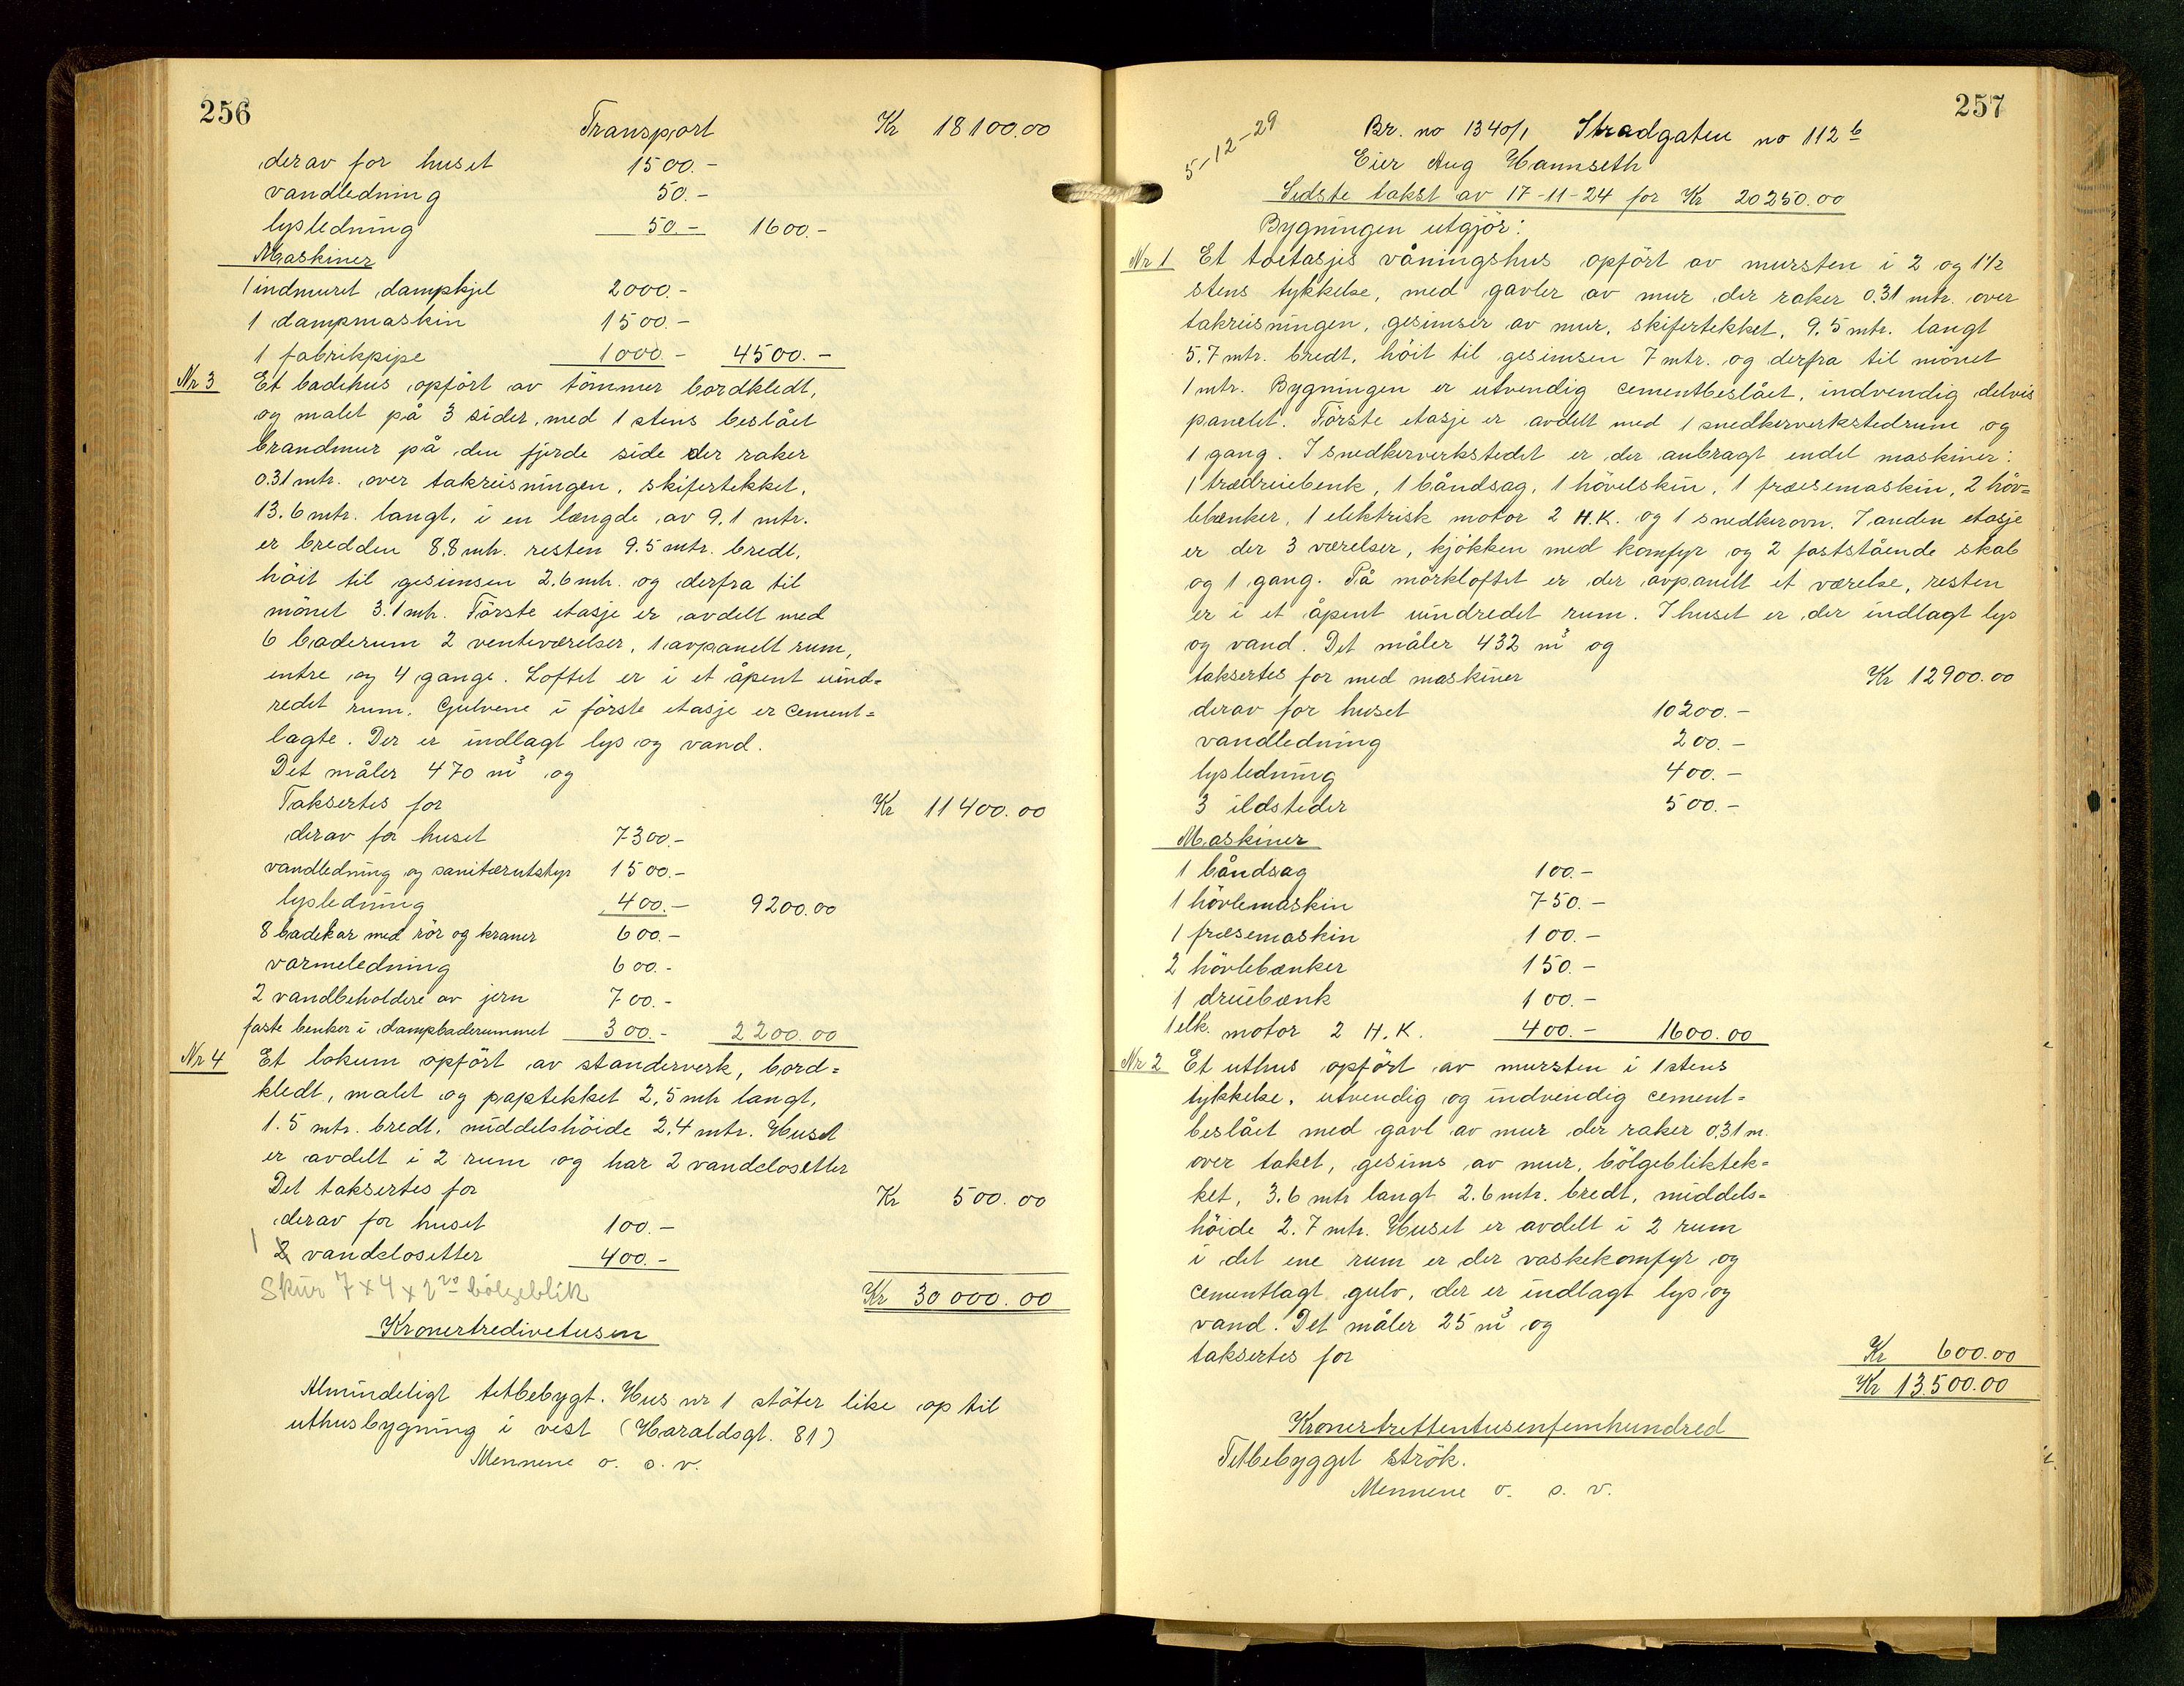 256
Transport Kr 18100.00
derav for huset 1500.-
vandledning 50.-
lysledning 50.- 1600.-
Maskiner
1 indmuret dampkjel 2000.-
1 dampmaskin 1500.-
1 fabrikpipe 1000.- 4500.-
Nr 3 Et badehus opfört av tömmer bordkledt,
og malet på 3 sider, med 1 stens beslået
brandmur på den fjerde side der raker
0.31 mtr. over takreisningen, skifertekket,
13.6 mtr. langt, i en længde av 9.1 mtr.
er bredden 8.8 mtr. resten 9.5 mtr. bredt,
höit til gesimsen 2.6 mtr. og derfra til
mönet 3.1 mtr. Förste etasje er avdelt med
6 baderum 2 venteværelser, 1 avpanelt rum,
entre og 4 gange. Loftet er i et åpent uind=
redet rum. Gulvene i förste etasje er cement=
lagte. Der er indlagt lys og vand.
Det måler 470 m³ og
Taksertes for Kr 11400.00
derav for huset 7300.-
vandledning og sanitærutstyr 1500.-
lysledning 400.- 9200.00
8 badekar med rör og kraner 600.-
varmeledning 600.-
2 vandbeholdere av jern 700.-
faste benker i dampbaderummet 300.- 2200.00
Nr 4 Et lokum opfört av standerverk, bord=
kledt, malet og paptekket 2,5 mtr langt,
1.5 mtr. bredt, middelshöide 2,4 mtr. Huset
er avdelt i 2 rum og har 2 vandclosetter
Det taksertes for Kr 500.00
derav for huset 100.-
1 2 vandclosetter 400.-
Skur 7 x 4 x 2²⁰ bölgeblik
Kr 30000.00
Kronertredivetusen
Almindeligt tetbebygt. Hus nr 1 stöter like op til
uthusbygning i vest (Haraldsgt. 81)
Mennene o. s. v.
257
5-12-29
Br. no 1340/1 Stradgaten no 112 b
Eier Aug Hannseth
Sidste takst av 17-11-24 for Kr 20250.00
Bygningen utgjör:
Nr 1 Et toetasjes våningshus opfört av mursten i 2 og 1½
stens tykkelse, med gavler av mur der raker 0.31 mtr. over
takreisningen, gesimser av mur, skifertekket, 9.5 mtr. langt
5.7 mtr. bredt, höit til gesimsen 7 mtr. og derfra til mönet
1 mtr. Bygningen er utvendig cementbeslået, indvendig delvis
panelet. Förste etasje er avdelt med 1 snedkerverkstedrum og
1 gang. I snedkerverkstedet er der anbragt endel maskiner:
1 trædreiebenk, 1 båndsag, 1 hövelskin, 1 fræsemaskin, 2 höv=
lebænker, 1 elektrisk motor 2 H.K. og 1 snedkerovn. I anden etasje
er der 3 værelser, kjökken med komfyr og 2 faststående skab
og 1 gang. På mörkloftet er der avpanelt et værelse, resten
er i et åpent uindredet rum. I huset er der indlagt lys
og vand. Det måler 432 m³ og
taksertes for med maskiner Kr 12900.00
derav for huset 10200.-
vandledning 200.-
lysledning 400.-
3 ildsteder 500.-
Maskiner
1 båndsag 100.-
1 hövlemaskin 750.-
1 fræsemaskin 100.-
2 hövlebænker 150.-
1 dreiebænk 100.-
1 elk. motor 2 H.K. 400.- 1600.00
Nr 2 Et uthus opfört av mursten i 1 stens
tykkelse, utvendig og indvendig cement=
beslået med gavl av mur der raker 0,31 m.
over taket, gesims av mur, bölgebliktek=
ket, 3.6 mtr langt 2.6 mtr. bredt, middels=
höide 2.7 mtr. Huset er avdelt i 2 rum
i det ene rum er der vaskekomfyr og
cementlagt gulv, der er indlagt lys og
vand. Det måler 25 m³ og
taksertes for Kr 600.00
Kr 13500.00
Kronertrettentusenfemhundred
Tetbebygget strök.
Mennene o. s. v.